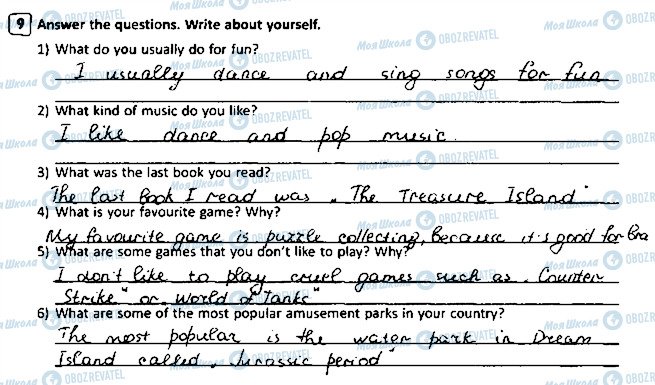 9 Answer the questions. Write about yourself.
1) What do you usually do for fun?
I usually dance and sing songs for fun
2) What kind of music do you like?
I like dance and pop music.
3) What was the last book you read?
The last book I read was „The Treasure Island"
4) What is your favourite game? Why?
My favourite game is puzzle collecting, because it's good for bra
5) What are some games that you don't like to play? Why?
I don't like to play cruel games such as „Counter
Strike" or „World of Tanks"
6) What are some of the most popular amusement parks in your country?
The most popular is the water park in Dream
Island called „Jurassic period"
Моя Школа OBOZREVATEL